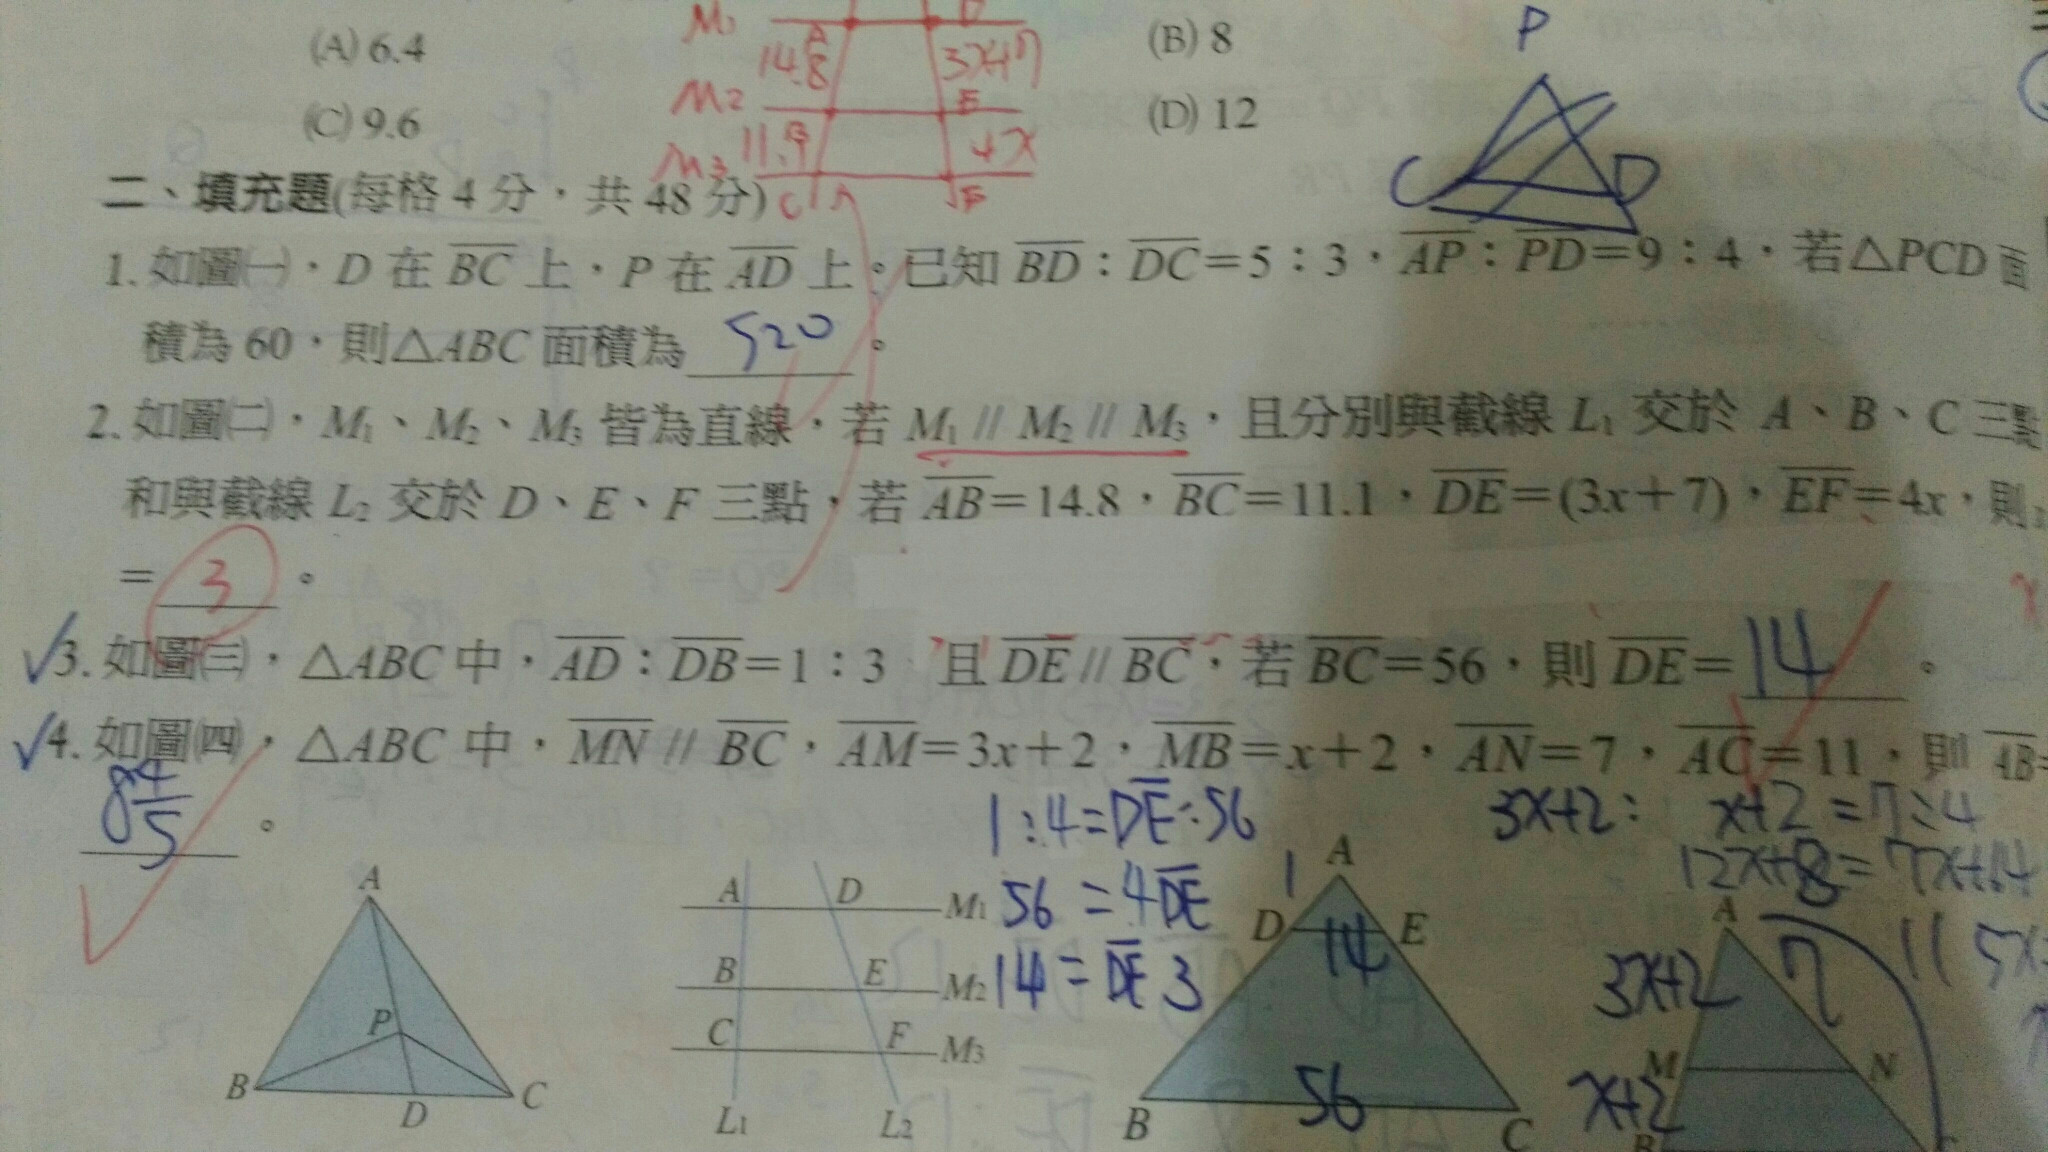 M₁ A D
(A) 6.4 14.8 3x+7 (B) 8 P
M₂ E
(C) 9.6 11.1 B 4x (D) 12
M₃ C F C D
二、填充題(每格 4 分，共 48 分)
1. 如圖㈠，D 在 BC 上，P 在 AD 上。已知 BD：DC=5：3，AP：PD=9：4，若△PCD 面
積為 60，則△ABC 面積為 520 。
2. 如圖㈡，M₁、M₂、M₃ 皆為直線，若 M₁ // M₂ // M₃，且分別與截線 L₁ 交於 A、B、C 三點
和與截線 L₂ 交於 D、E、F 三點，若 AB=14.8，BC=11.1，DE=(3x+7)，EF=4x，則
= 3 。
✓3. 如圖㈢，△ABC 中，AD：DB=1：3 且 DE // BC，若 BC=56，則 DE= 14 。
✓4. 如圖㈣，△ABC 中，MN // BC，AM=3x+2，MB=x+2，AN=7，AC=11，則 AB=
8 4/5 。
1:4=DE:56 3x+2: x+2=7:4
56=4DE 12x+8=7x+14
14=DE 11 5x=
A
P
B D C
A D M₁
B E M₂
C F M₃
L₁ L₂
1 A
D 14 E
3
B 56 C
A
3x+2 7
M N
x+2
B